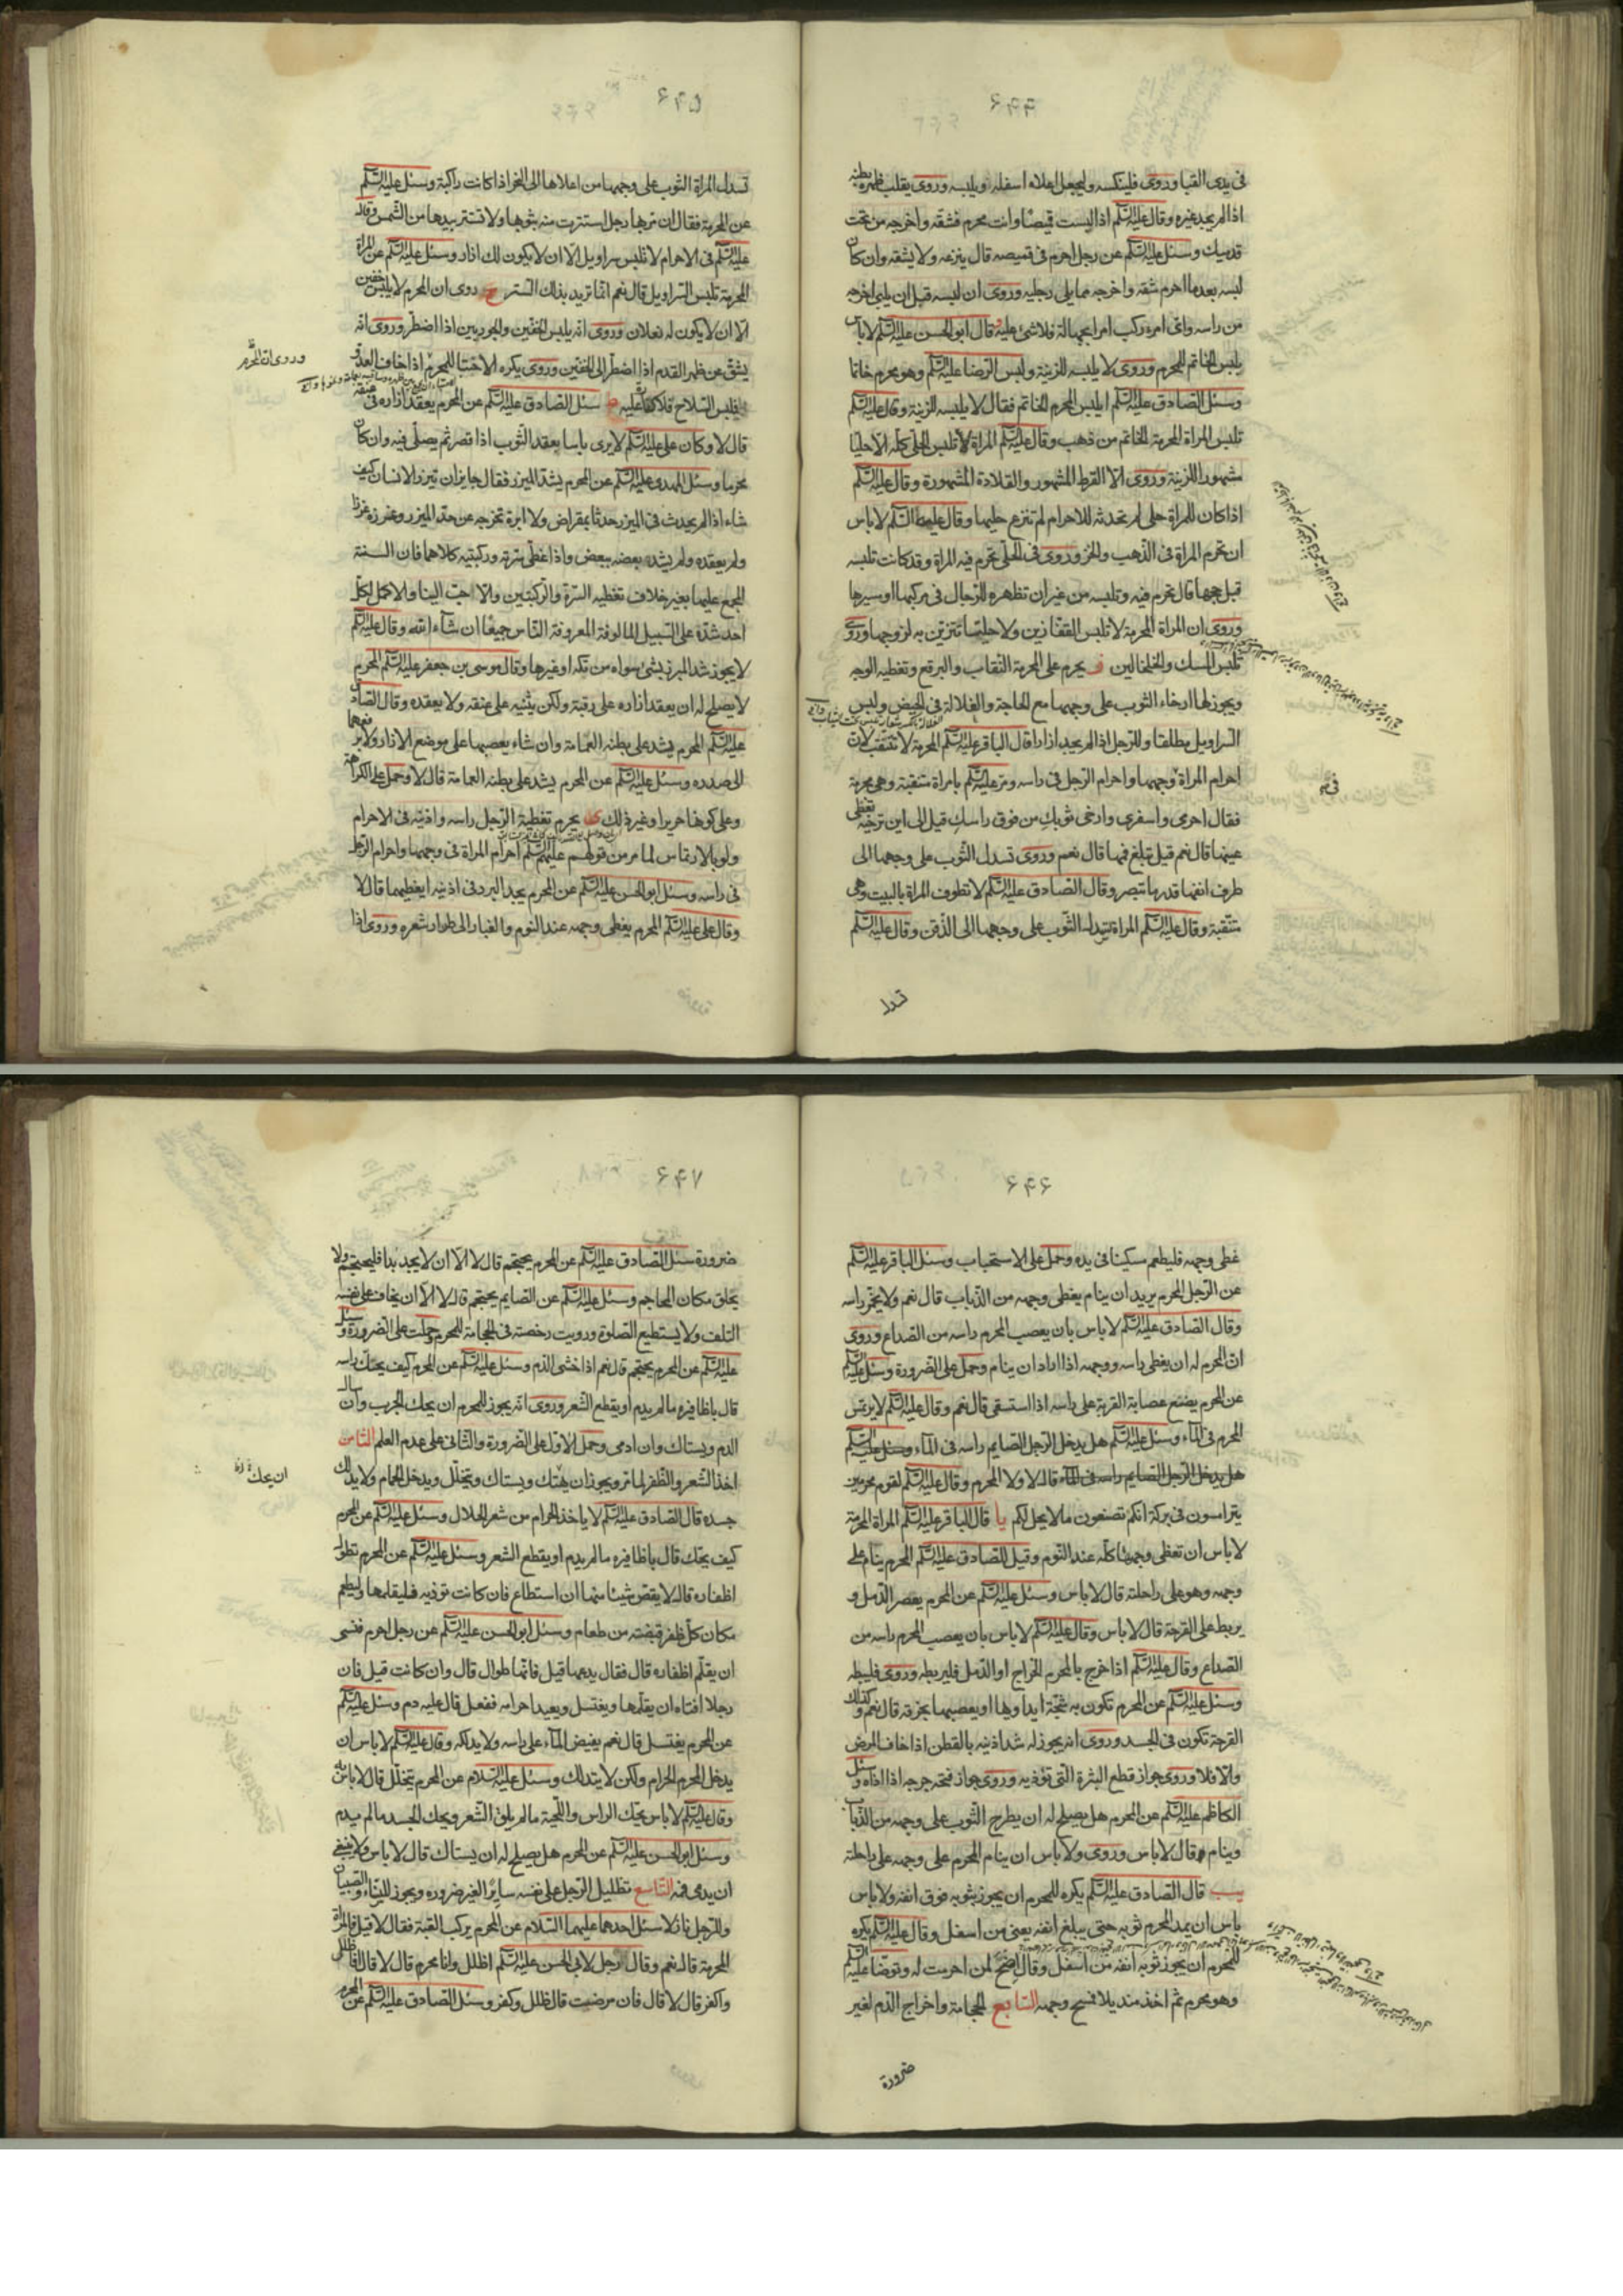 ۶۴۴
فى يدى القبا وروى فلينكسه وليجعل اعلاه اسفله ويلبسه وروى يقلب ظهره بطنه
اذا لم يجد غيره وقال عليه السلم اذا لبست قميصا وانت محرم فشقه واخرجه من تحت
قدميك وسئل عليه السلم عن رجل احرم فى قميصه قال ينزعه ولا يشقه وان كان
لبسه بعد ما احرم شقه واخرجه مما يلى رجليه وروى ان لبسه قبل ان يلبى اخرجه
من راسه واى امرء ركب امرا بجهالة فلا شئ عليه و قال ابو الحسن عليه السلم لا باس
يلبس الخاتم للمحرم وروى لا يلبسه للزينة ولبس الرضا عليه السلم وهو محرم خاتما
وسئل الصادق عليه السلم ايلبس المحرم الخاتم فقال لا يلبسه للزينة وقال عليه السلم
تلبس المراة المحرمة الخاتم من ذهب وقال عليه السلم المراة لا تلبس الحلى كله الا حليا
مشهورا للزينة وروى الا القرط المشهور والقلادة المشهورة وقال عليه السلم
اذا كان للمراة حلى لم تحدثه للاحرام لم تنزع حليها وقال عليهما السلم لا باس
ان تحرم المراة فى الذهب والخز وروى فى الحلى تحرم فيه المراة وقد كانت تلبسه
قبل حجها قال تحرم فيه وتلبسه من غير ان تظهره للرجال فى مركبها او سيرها
وروى ان المراة المحرمة لا تلبس القفازين ولا حليتها تتزين به لزوجها وروى
تلبس المسك والخلخالين ز يحرم على المحرمة النقاب والبرقع وتغطيه الوجه
ويجوز لها ارخاء الثوب على وجهها مع الحاجة والغلالة فى الحيض ولبس
السراويل مطلقا وللرجل اذا لم يجد ازارا قال الباقر عليه السلم المحرمة لا تتنقب لان
احرام المراة وجهها واحرام الرجل فى راسه ومر عليه السلم بامراة متنقبة وهى محرمة
فقال احرمى واسفرى وارخى ثوبك من فوق راسك قيل الى اين ترخيه تغطى
عينيها قال نعم قيل تبلغ فمها قال نعم وروى تسدل الثوب على وجهها الى
طرف انفها قدر ما تبصر وقال الصادق عليه السلم لا تطوف المراة بالبيت وهى
متنقبة وقال عليه السلم المراة تسدل الثوب على وجهها الى الذقن وقال عليه السلم
تسدل
۶۴۵
تسدل المراة الثوب على وجهها من اعلاها الى النحر اذا كانت راكبة وسئل عليه السلم
عن المحرمة فقال ان مر بها رجل استترت منه بثوبها ولا تستتر بيدها من الشمس وقال
عليه السلم فى الاحرام لا تلبس سراويل الا ان لا يكون لك ازار وسئل عليه السلم عن المراة
المحرمة تلبس السراويل قال نعم انما تريد بذلك الستر ح روى ان المحرم لا يلبس خفين
الا ان لا يكون له نعلان وروى انه يلبس الخفين والجوربين اذا اضطر وروى انه
يشق عن ظهر القدم اذا اضطر الى الخفين وروى يكره الاحتبا للمحرم اذا خاف العدو
وروى ان المحرم
فلبس السلاح فلا كفارة عليه ط سئل الصادق عليه السلم عن المحرم يعقد ازاره فى عنقه
قال لا وكان على عليه السلم لا يرى باسا بعقد الثوب اذا قصر ثم يصلى فيه وان كان
محرما وسئل المهدى عليه السلم عن المحرم يشد الميزر فقال جايز ان يتزر الانسان كيف
شاء اذا لم يحدث فى الميزر حدثا بمقراض ولا ابرة تخرجه عن حد الميزر وغرزه غرزا
ولم يعقده ولم يشد بعضه ببعض واذا غطى سرته وركبتيه كلاهما فان السنة
المجمع عليها بغير خلاف تغطيه السرة والركبتين والاحب الينا والاكمل لكل
احد شده على السبيل المالوفة المعروفة الناس جميعا ان شاء الله وقال عليه السلم
لا يجوز شد الميزر بشئ سواه من تكه او غيرها وقال موسى بن جعفر عليه السلم المحرم
لا يصلح له ان يعقد ازاره على رقبته ولكن يثنيه على عنقه ولا يعقده وقال الصادق
عليه السلم المحرم يشد على بطنه العمامة وان شاء يعصبها على موضع الازار ولا يرفعها
الى صدره وسئل عليه السلم عن المحرم يشد على بطنه العمامة قال لا وحمل على الكراهة
وعلى كونها حريرا وغير ذلك ى يحرم تغطية الرجل راسه واذنيه فى الاحرام
ولو بالارتماس لما مر من قولهم عليهم السلم احرام المراة فى وجهها واحرام الرجل
فى راسه وسئل ابو الحسن عليه السلم عن المحرم يجد البرد فى اذنيه ايغطيهما قال لا
وقال على عليه السلم المحرم يغطى وجهه عند النوم والغبار الى طرار شعره وروى اذا
۶۴۶
غطى وجهه فليطعم مسكينا فى يده وحمل على الاستحباب وسئل الباقر عليه السلم
عن الرجل المحرم يريد ان ينام يغطى وجهه من الذباب قال نعم ولا يخمر راسه
وقال الصادق عليه السلم لا باس بان يعصب المحرم راسه من الصداع وروى
ان المحرم له ان يغطى راسه ووجهه اذا اراد ان ينام وحمل على الضرورة وسئل عليه السلم
عن المحرم يضع عصابة القربة على راسه اذا استسقى قال نعم وقال عليه السلم لا يرتمس
المحرم فى الماء وسئل عليه السلم هل يدخل الرجل الصايم راسه فى الماء وسئل عليه السلم
هل يدخل الرجل الصايم راسه فى الماء قال لا ولا المحرم وقال عليه السلم لقوم محرمين
يتراسون فى بركة انكم تصنعون ما لا يحل لكم يا قال الباقر عليه السلم المراة المحرمة
لا باس ان تغطى وجهها كله عند النوم وقيل للصادق عليه السلم المحرم ينام على
وجهه وهو على راحلته قال لا باس وسئل عليه السلم عن المحرم يعصر الدمل و
يربط على القرحة قال لا باس وقال عليه السلم لا باس بان يعصب المحرم راسه من
الصداع وقال عليه السلم اذا خرج بالمحرم الخراج او الدمل فليربطه وروى فليبطه
وسئل عليه السلم عن المحرم تكون به شجة ايداويها او يعصبها بخرقة قال نعم وكذلك
القرحة تكون فى الجسد وروى انه يجوز له شد اذنيه بالقطن اذا خاف المرض
والا فلا وروى جواز قطع البثرة التى تؤذيه وروى جواز فتحه جرحه اذا اذاه وسئل
الكاظم عليه السلم عن المحرم هل يصلح له ان يطرح الثوب على وجهه من الذباب
وينام قال لا باس وروى ولا باس ان ينام المحرم على وجهه على راحلته
يب قال الصادق عليه السلم يكره للمحرم ان يجوز بثوبه فوق انفه ولا باس
باس ان يمد المحرم ثوبه حتى يبلغ انفه يعنى من اسفل وقال عليه السلم يكره
للمحرم ان يجوز ثوبه انفه من اسفل وقال اضح لمن احرمت له وتوضا عليه السلم
وهو محرم ثم اخذ منديلا فمسح وجهه السابع الحجامة واخراج الدم لغير
ضرورة
۶۴۷
ضرورة سئل الصادق عليه السلم عن المحرم يحتجم قال لا الا ان لا يجد بدا فليحتجم ولا
يحلق مكان المحاجم وسئل عليه السلم عن الصايم يحتجم قال لا الا ان يخاف على نفسه
التلف ولا يستطيع الصلوة ورويت رخصته فى الحجامة للمحرم حملت على الضرورة وسئل
عليه السلم عن المحرم يحتجم قال نعم اذا خشى الدم وسئل عليه السلم عن المحرم كيف يحك راسه
قال باظافيره ما لم يدم او يقطع الشعر وروى انه يجوز للمحرم ان يحك الجرب وان سال
الدم ويستاك وان ادمى وحمل الاول على الضرورة والثانى على عدم العلم الثامن
اخذ الشعر والظفر لما مر ويجوز ان يحتك ويستاك ويتخلل ويدخل الحمام ولا يدلك
ان يحك
جسده قال الصادق عليه السلم لا ياخذ الحرام من شعر الحلال وسئل عليه السلم عن المحرم
كيف يحك قال باظافيره ما لم يدم او يقطع الشعر وسئل عليه السلم عن المحرم تطول
اظفاره قال لا يقص شيئا منها ان استطاع فان كانت توذيه فليقلمها وليطعم
مكان كل ظفر قبضته من طعام وسئل ابو الحسن عليه السلم عن رجل احرم فنسى
ان يقلم اظفاره قال فقال يدعها قيل فانها طوال قال وان كانت قيل فان
رجلا افتاه ان يقلمها ويغتسل ويعيد احرامه ففعل قال عليه دم وسئل عليه السلم
عن المحرم يغتسل قال نعم يفيض الماء على راسه ولا يدلكه وقال عليه السلم لا باس ان
يدخل المحرم الحمام ولكن لا يتدلك وسئل عليه السلام عن المحرم يتخلل قال لا باس به
وقال عليه السلم لا باس بحك الراس واللحية ما لم يلق الشعر ويحك الجسد ما لم يدم
وسئل ابو الحسن عليه السلم عن المحرم هل يصلح له ان يستاك قال لا باس ولا ينبغى
ان يدمى فمه التاسع تظليل الرجل على نفسه سايرا لغير ضرورة ويجوز للنساء والصبيان
وللرجل نازلا سئل احدهما عليهما السلام عن المحرم يركب القبة فقال لا قيل فالمراة
المحرمة قال نعم وقال رجل لابى الحسن عليه السلم اظلل وانا محرم قال لا قال فاظلل
واكفر قال لا قال فان مرضت قال ظلل وكفر وسئل الصادق عليه السلم عن المحرم